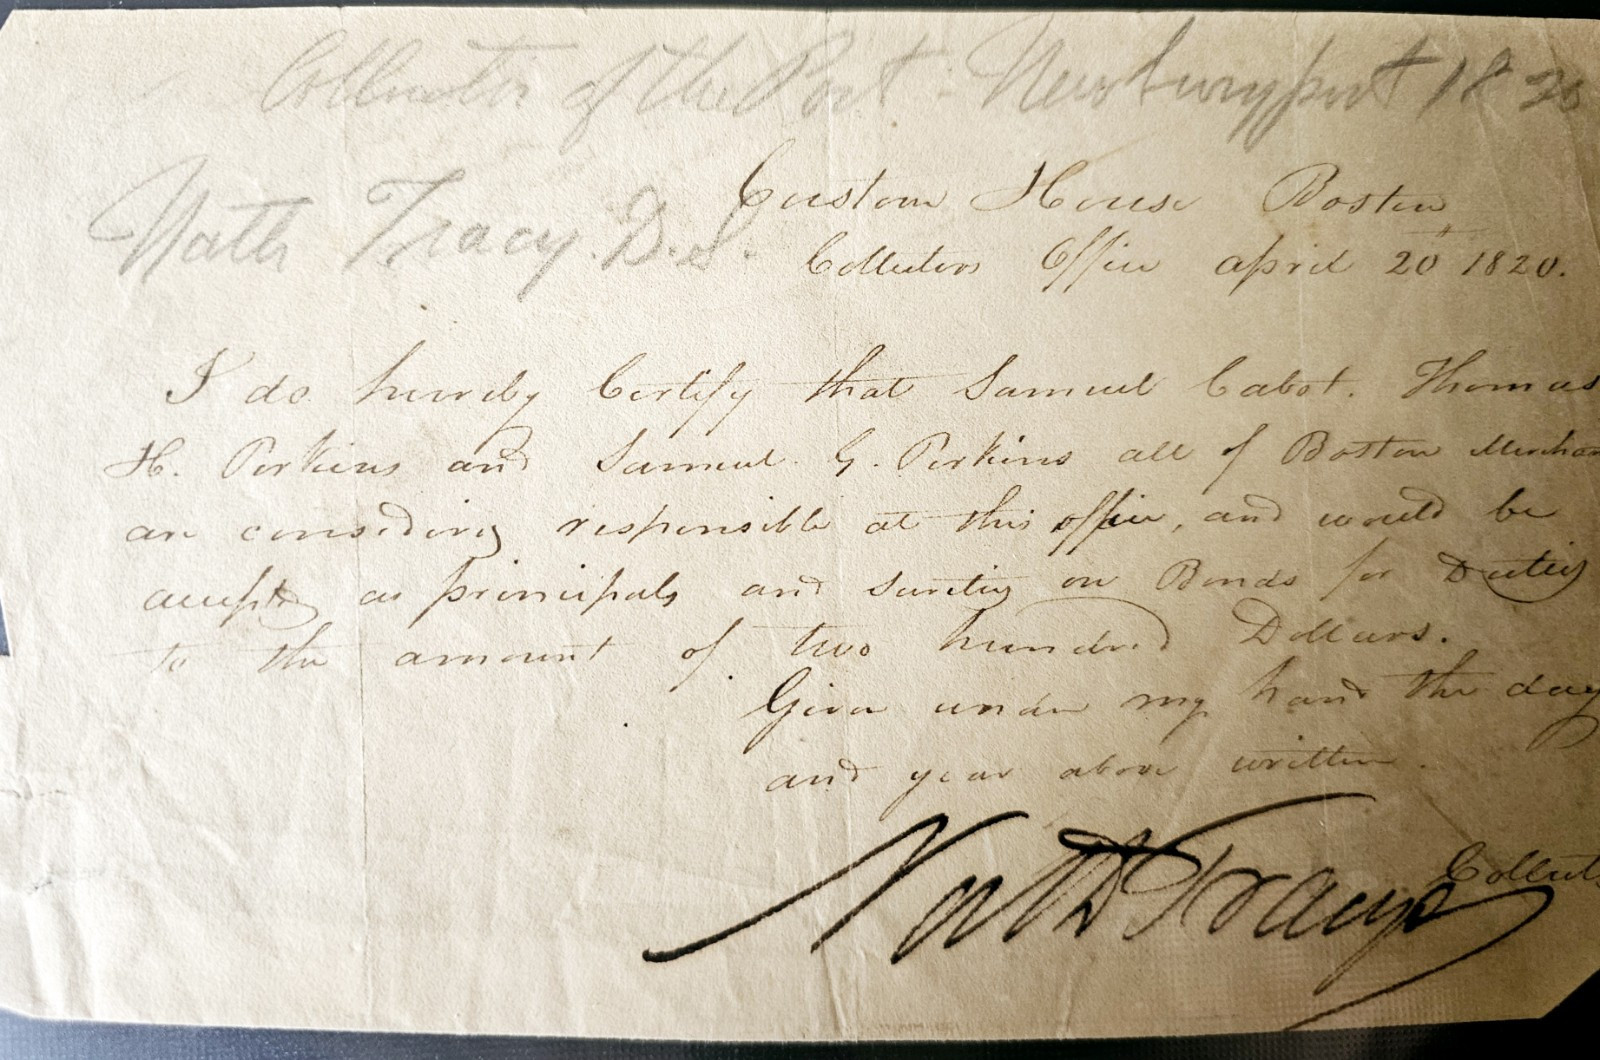 Collector of the Port Newburyport 1820
Nath Tracy. D.S.
Custom House Boston
Collectors Office april 20th 1820.
I do hereby Certify that Samuel Cabot. Thomas
H. Perkins and Samuel G. Perkins all of Boston Merchan
are considered responsible at this office, and would be
accepted as principals and sureties on Bonds for Duties
to the amount of two hundred Dollars.
Given under my hand the day
and year above written.
Tracy
Collect